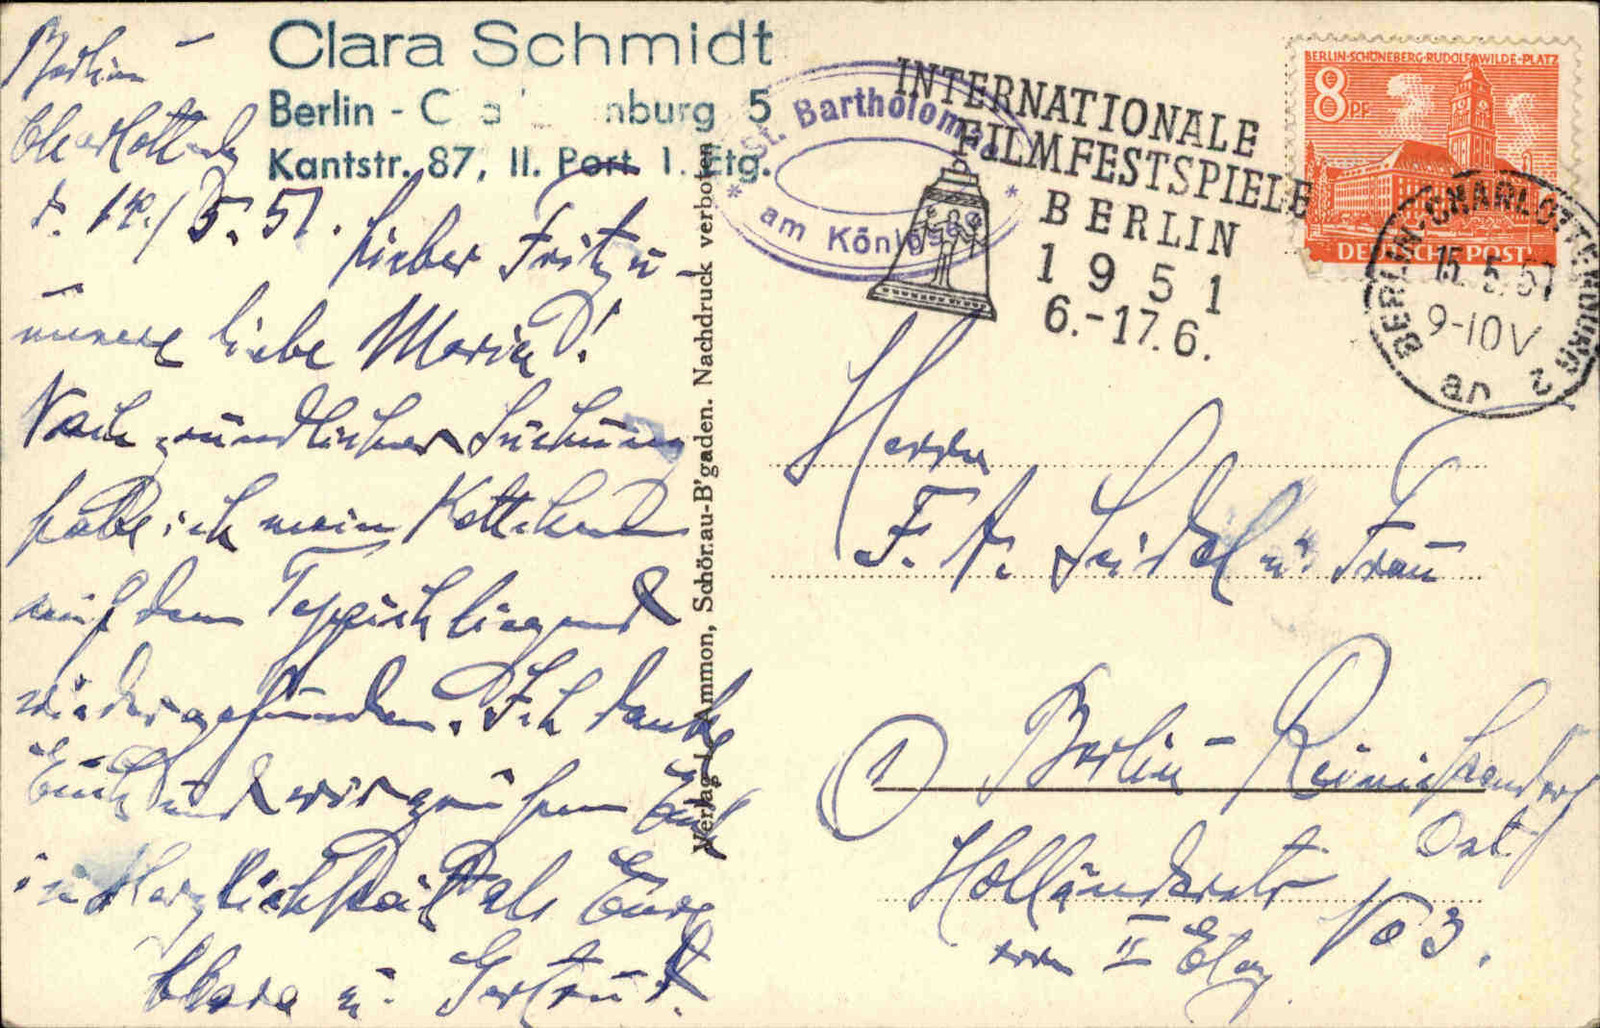 Clara Schmidt
Berlin - C nburg 5
Kantstr. 87, II. Port. 1. Etg.
Berlin -
Charlottenbg
d. 14./5. 51.
Lieber Fritz u -
unsere liebe Maria!
Nach gründlicher Suchung
habe ich mein Kettchen
auf dem Teppich liegend
wiedergefunden. Ich danke
Euch und wir grüßen Euch
in Herzlichkeit als Eure
Clara u. Gertrud.
Verlag L. Ammon, Schönau-B'gaden. Nachdruck verboten
St. Bartholomä
am Königssee
INTERNATIONALE
FILMFESTSPIELE
BERLIN
1951
6.-17.6.
BERLIN-SCHÖNEBERG·RUDOLF WILDE-PLATZ
8 PF
DEUTSCHE POST
BERLIN-CHARLOTTENBURG
15.5.51
9-10V
an 2
Herrn
F. A. Seidel u. Frau
① Berlin - Reinickendorf
Ost
Holländerstr No 3.
II Etg